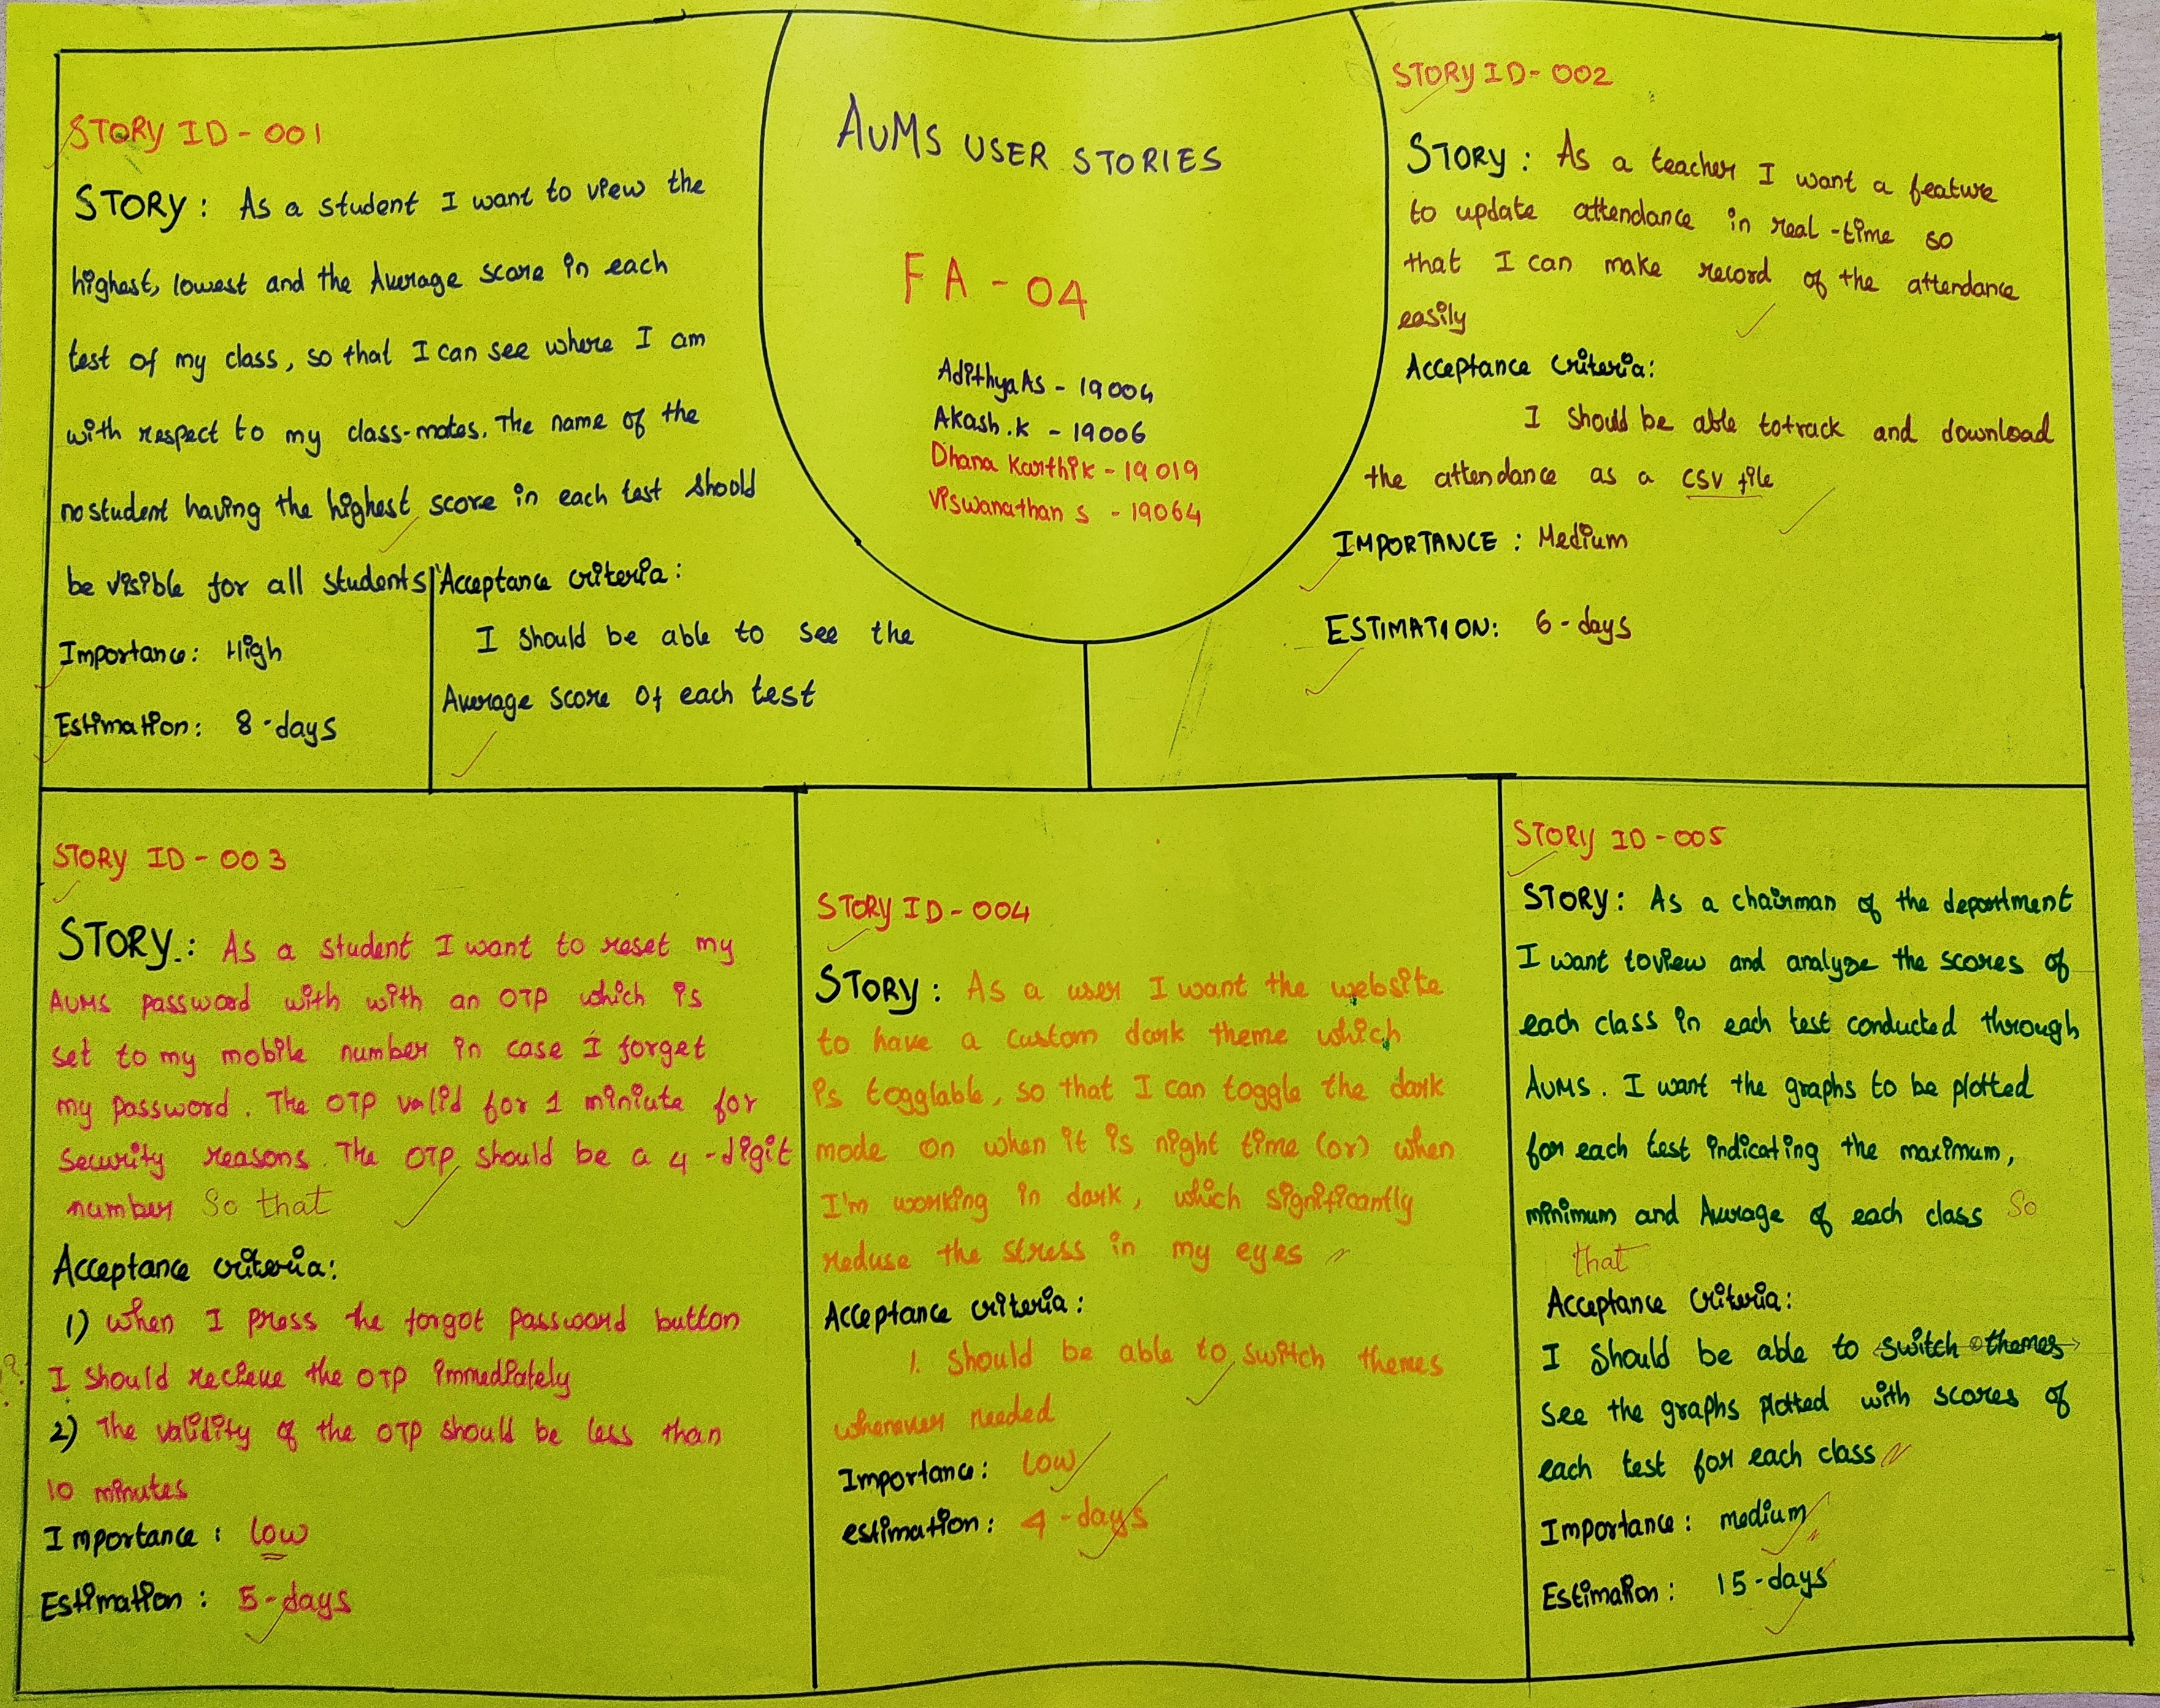 AUMS USER STORIES
FA-04
Adithya AS - 19004
Akash.K - 19006
Dhana Karthik - 19019
Viswanathan S - 19064
STORY ID - 001
STORY: As a student I want to view the
highest, lowest and the Average score in each
test of my class, so that I can see where I am
with respect to my class-mates. The name of the
no student having the highest score in each test should
be visible for all students
Importance: High
Estimation: 8-days
Acceptance criteria:
I should be able to see the
Average score of each test
STORY ID - 002
STORY: As a teacher I want a feature
to update attendance in real-time so
that I can make record of the attendance
easily
Acceptance Criteria:
I should be able to track and download
the attendance as a CSV file
IMPORTANCE: Medium
ESTIMATION: 6-days
STORY ID - 003
STORY: As a student I want to reset my
AUMS password with with an OTP which is
set to my mobile number in case I forget
my password. The OTP valid for 1 miniute for
security reasons. The OTP should be a 4-digit
number So that
Acceptance criteria:
1) When I press the forgot password button
I should recieve the OTP immediately
2) The validity of the OTP should be less than
10 minutes
Importance: low
Estimation: 5-days
STORY ID - 004
STORY: As a user I want the website
to have a custom dark theme which
is togglable, so that I can toggle the dark
mode on when it is night time (or) when
I'm working in dark, which significantly
reduse the stress in my eyes
Acceptance criteria:
1. should be able to switch themes
whenever needed
Importance: low
estimation: 4-days
STORY ID - 005
STORY: As a chairman of the department
I want to view and analyze the scores of
each class in each test conducted through
AUMS. I want the graphs to be plotted
for each test indicating the maximum,
minimum and Average of each class So
that
Acceptance Criteria:
I should be able to switch themes
see the graphs plotted with scores of
each test for each class
Importance: medium
Estimation: 15-days